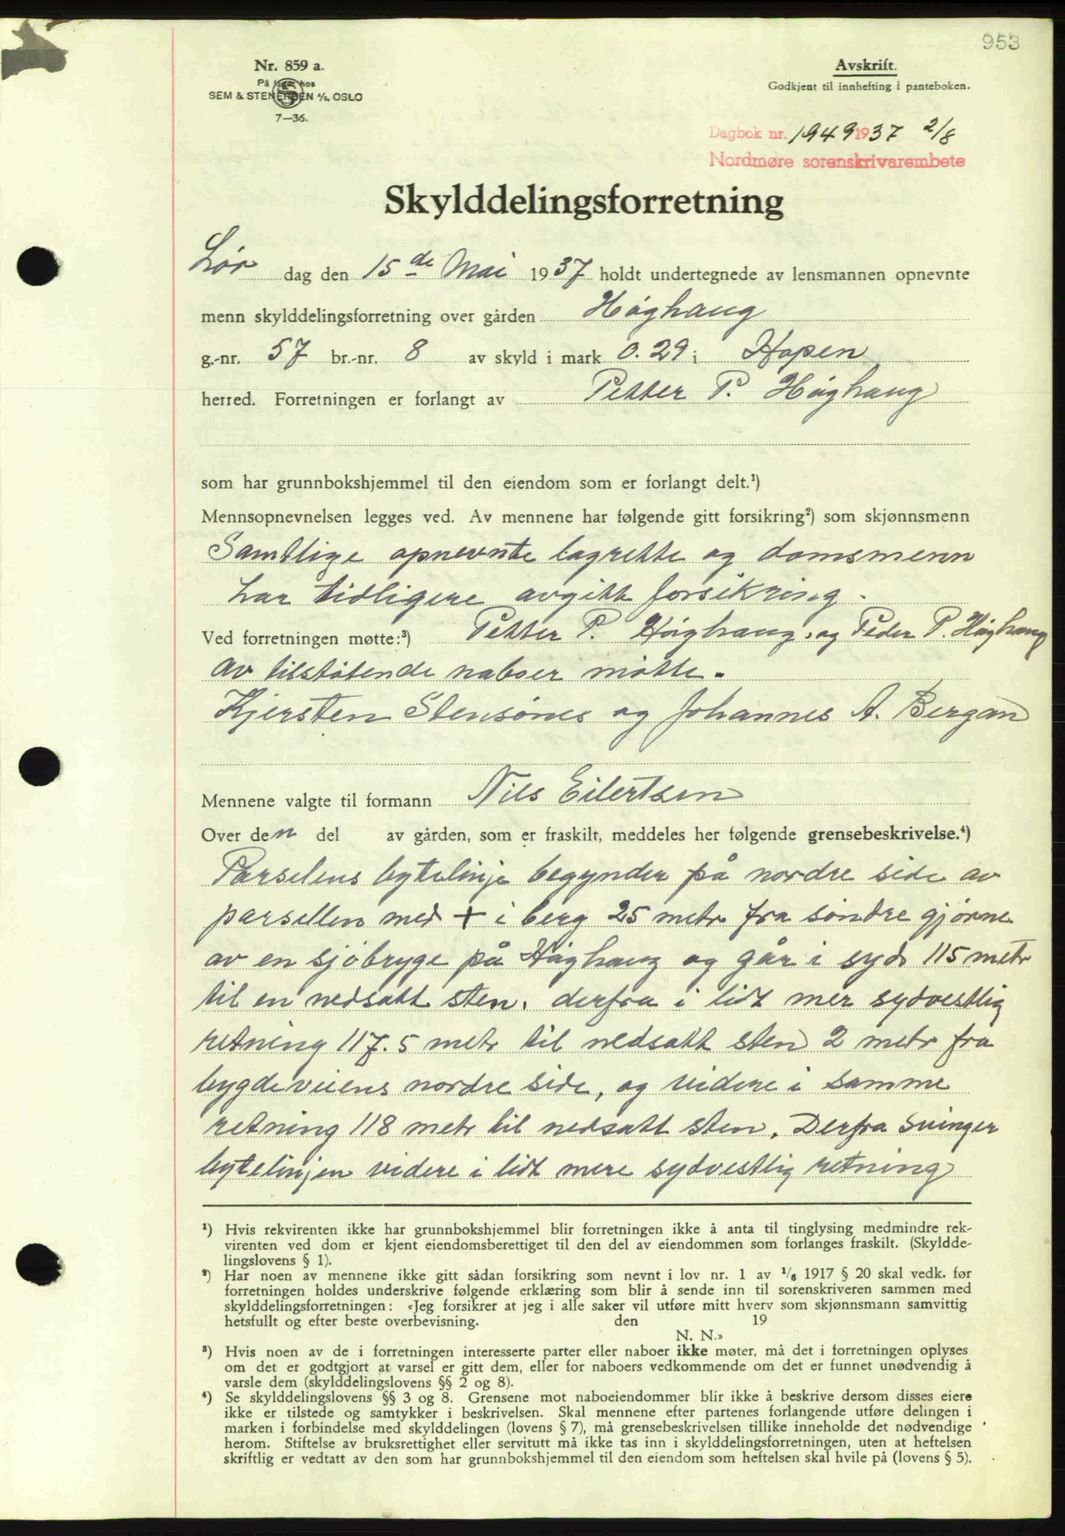 953
Nr. 859 a.
På lager hos
SEM & STENERSEN A/S, OSLO
7—36.
Avskrift.
Godkjent til innhefting i panteboken.
Dagbok nr. 1949 1937 2/8
Nordmøre sorenskrivarembete
Skylddelingsforretning
Lør dag den 15de Mai 1937 holdt undertegnede av lensmannen opnevnte
menn skylddelingsforretning over gården Høghaug
g.-nr. 57 br.-nr. 8 av skyld i mark 0.29 i Hopen
herred. Forretningen er forlangt av Petter P. Høghaug
som har grunnbokshjemmel til den eiendom som er forlangt delt.¹)
Mennsopnevnelsen legges ved. Av mennene har følgende gitt forsikring²) som skjønnsmenn
Samtlige opnevnte lagrette og domsmenn
har tidligere avgitt forsikring.
Ved forretningen møtte:³) Petter P. Høighaug, og Peder P. Høghaug
av tilstøtende naboer møtte.
Kjersten Stensønes og Johannes A. Bergan
Mennene valgte til formann Nils Eilertsen
Over den del av gården, som er fraskilt, meddeles her følgende grensebeskrivelse.⁴)
Parselens bytelinje begynder på nordre side av
parsellen med + i berg 25 metr fra søndre gjørne
av en sjøbryge på Høghaug og går i syd 115 metr
til en nedsatt sten. derfra i lidt mer sydvestlig
retning 117.5 metr til nedsatt sten 2 metr fra
bygdeveiens nordre side, og videre i samme
retning 118 metr til nedsatt sten. Derfra svinger
bytelinjen videre i lidt mere sydvestlig retning
¹) Hvis rekvirenten ikke har grunnbokshjemmel blir forretningen ikke å anta til tinglysing medmindre rek-
virenten ved dom er kjent eiendomsberettiget til den del av eiendommen som forlanges fraskilt. (Skyldde-
lingslovens § 1).
²) Har noen av mennene ikke gitt sådan forsikring som nevnt i lov nr. 1 av 1/6 1917 § 20 skal vedk. før
forretningen holdes underskrive følgende erklæring som blir å sende inn til sorenskriveren sammen med
skylddelingsforretningen: «Jeg forsikrer at jeg i alle saker vil utføre mitt hverv som skjønnsmann samvittig
hetsfullt og efter beste overbevisning. den 19
N. N.»
³) Hvis noen av de i forretningen interesserte parter eller naboer ikke møter, må det i forretningen oplyses
om det er godtgjort at varsel er gitt dem, eller for naboers vedkommende om det er funnet unødvendig å
varsle dem (skylddelingslovens §§ 2 og 8).
⁴) Se skylddelingslovens §§ 3 og 8. Grensene mot naboeiendommer blir ikke å beskrive dersom disses eiere
ikke er tilstede og samtykker i beskrivelsen. Skal mennene efter partenes forlangende utføre delingen i
marken i forbindelse med skylddelingen (lovens § 7), må grensebeskrivelsen tillike inneholde det nødvendige
herom. Stiftelse av bruksrettighet eller servitutt må ikke tas inn i skylddelingsforretningen, uten at heftelsen
skriftlig er vedtatt av den som har grunnbokshjemmel til den eiendom som heftelsen skal hvile på (lovens § 5).